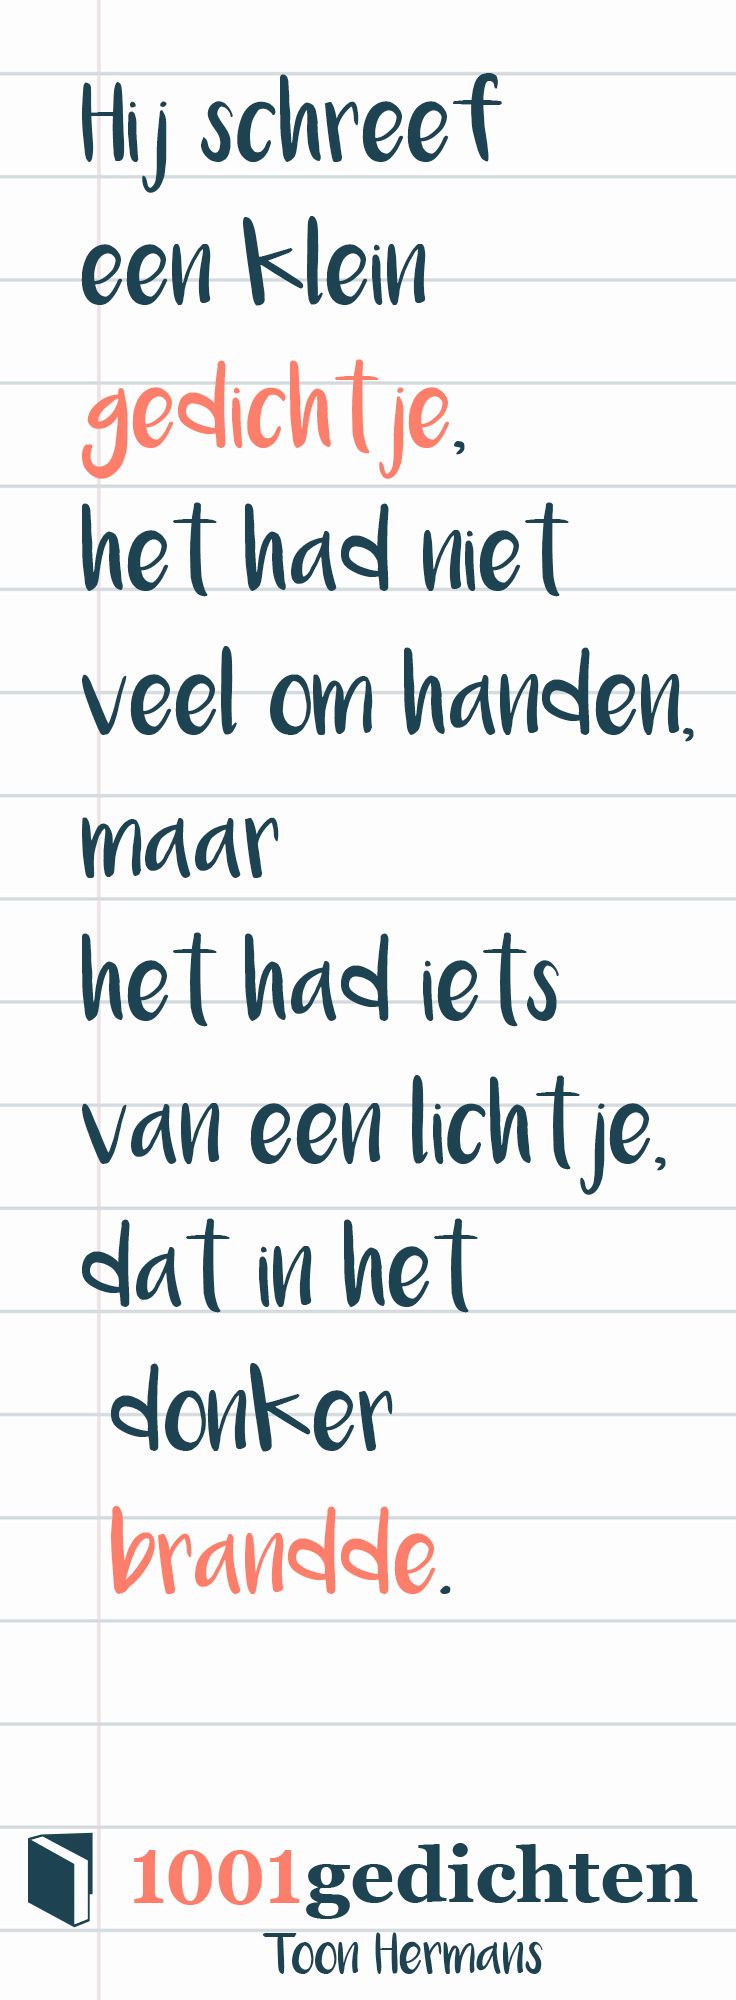 Hij schreef
een klein
gedichtje,
het had niet
veel om handen,
maar
het had iets
van een lichtje,
dat in het
donker
brandde.
1001gedichten
Toon Hermans